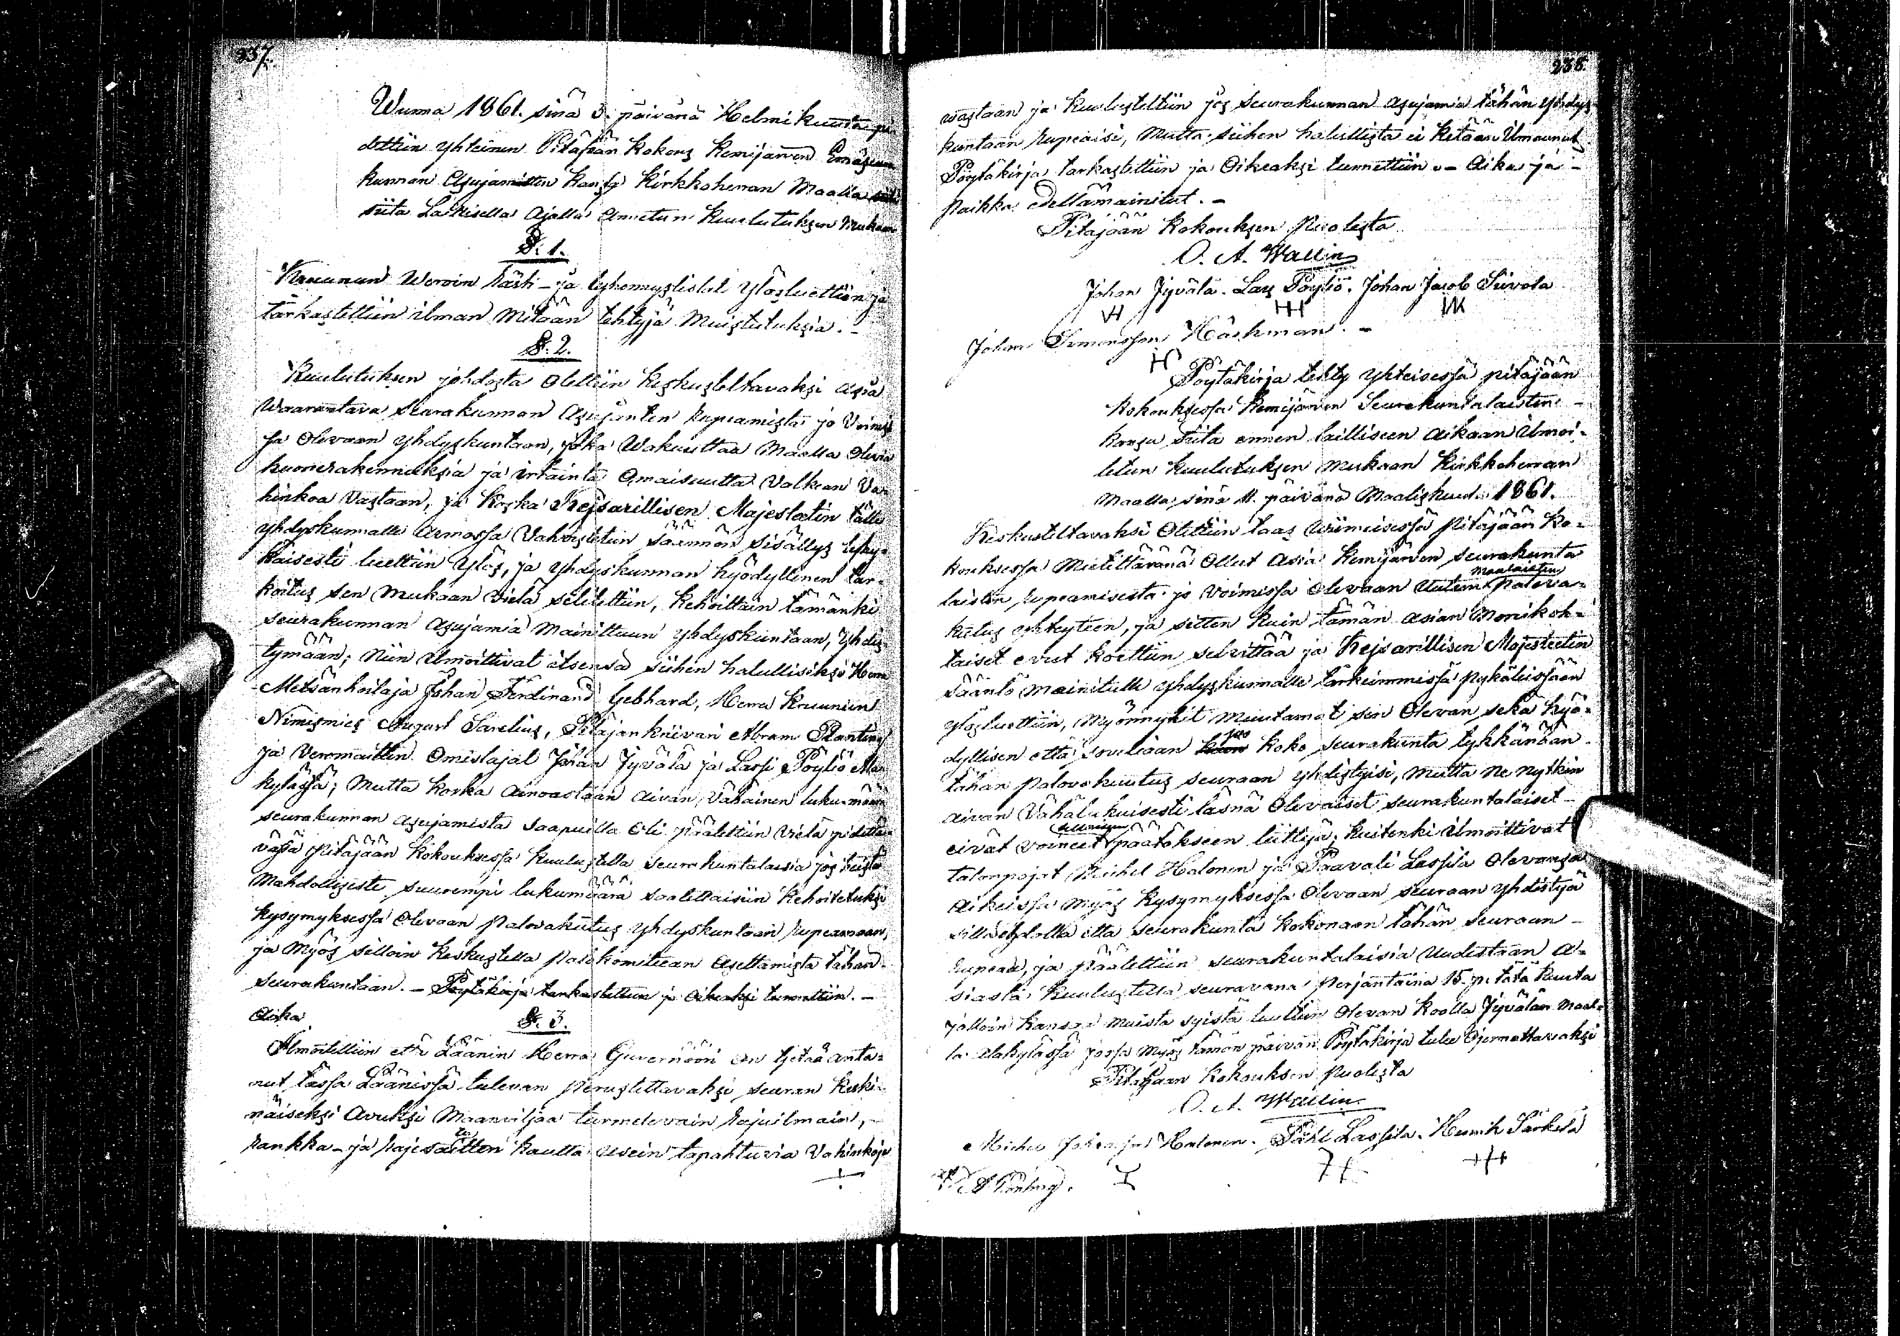 237.
Wunna 1861. sinä 3. päivänä Helmikuusta pi-
dettiin yhteinen Pitäjään kokous Kemijärven Emäseura
kunnan Asujamitten kansa Kirkkoherran Maalla
siitä Laillisella Ajalla Annetun Kuulutuksen Mukaan
§. 1.
Kruunun Weroin kästi- ja lyhennyslistat Ylösluettiin ja
tarkastettiin ilman mitään tehtyjä Muistutuksia. -
§. 2.
Kuulutuksen johdosta Otettiin Keskusteltavaksi asia
Waarantava Seurakunnan Asujanten rupeamista jo Voimas
sa Olevaan yhdyskuntaan, joka Wakuuttaa Maalla Olevia
huonerakennuksia ja irtainta Omaisuutta Valkean Va-
hinkoa Vastaan, ja Koska Keisarillisen Majesteetin tälle
yhdyskunnalle Armossa Vahvistetun säännön sisällys lyhy-
käisesti luettiin Ylös, ja yhdyskunnan hyödyllinen tar-
koitus sen mukaan vielä selitettiin, Kehoittain tämänki
seurakunnan asujamia mainittuun yhdyskuntaan, Yhdis-
tymään; Niin ilmoittivat itsensä siihen halullisiksi Herra
Metsänhoitaja Johan Ferdinand Gebhard, Herra Kruunun
Nimismies August Sarelius, Pitäjänkriivari Abram Planting
ja Veromaitten Omistajat Johan Jyvälä ja Lassi Pöyliö Ala-
kylästä; Mutta koska ainoastaan aivan Vähäinen lukumäärä
seurakunnan asujamista saapuilla Oli päätettiin Vielä pidettä-
vässä Pitäjään Kokouksessa kuulustella seurakuntalaisia jos heistä
Mahdollisesti suurempi lukumäärä saatettaisiin Kehoitetuksi
kysymyksessä Olevaan Palovakuutus yhdyskuntaan rupeamaan,
ja Myös silloin Keskustella Palokomiteean Asettamista tähän
seurakuntaan. - Pöytäkirja tarkastettiin ja Oikeaksi tunnettiin. -
Aika
§. 3.
Ilmoitettiin että Läänin Herra Guvernööri on tietää anta-
nut tässä Läänissä tulevan perustettavaksi seuran keski-
näiseksi Avuksi Maanviljaa turmelevain rajuilmain, -
rankka- ja rajesaitten kautta usein tapahtuvia Vahinkoja
238.
wastaan ja Kuulusteltiin jos seurakunnan asujamia tähän yhdys-
kuntaan rupeaisi, Mutta siihen halullista ei ketään Ilmaunut
Pöytäkirja tarkastettiin ja Oikeaksi tunnettiin Aika ja -
Paikka Edellämainitut. -
Pitäjään Kokouksen Puolesta
O. A. Wallin
Johan Jyvälä. Lars Pöyliö. Johan Jacob Siivola
Johan Simonsson Käshman. -
Pöytäkirja tehty Yhteisessä pitäjään
Kokouksessa Kemijärven Seurakuntalaisten -
kansa siitä ennen lailliseen aikaan Ilmoi-
tetun Kuulutuksen mukaan Kirkkoherran
Maalla sinä 11. päivänä Maaliskuuta 1861.
Keskusteltavaksi Otettiin taas viimeisessä pitäjään ko-
kouksessa Mietittävänä Ollut Asia Kemijärven seurakunta
laisten rupeamisesta jo voimissa Olevaan Uuteen maalaisten Paleva-
kutus yhteyteen, ja sitten kuin tämän asian Monikoh-
taiset evut koettiin selvittää ja Keisarillisen Majesteetin
Sääntö mainitulle yhdyskunnalle tärkeimmissä pykäleissään
ylösluettiin, Myönnykit muutamat sen Olevan sekä hyö-
dyllisen että soveliaan jos koko seurakunta tykkänään
tähän palovakuutus seuraan yhdistyisi, mutta ne nytkin
aivan Vähälukuisesti läsnä Olevaiset seurakuntalaiset -
eivät voineet päätökseen liittyä; kuitenki ilmoittivat
talonpojat Michel Halonen ja Paavali Lassila Olevansa
Aikeissa myös kysymyksessä Olevaan seuraan yhdistyä
sillä ehdolla että seurakunta kokonaan tähän seuraan -
rupeaa, ja päätettiin seurakuntalaisia uudestaan a-
siasta Kuulustella seuraavana Perjantaina 15. p. tätä kuuta
jolloin kansaa muista syistä luultiin Olevan koolla Jyvälän maal-
la Alakylässä jossa myös tämän päivän Pöytäkirja tulee Ojennettavaksi
Pitäjään Kokouksen Puolesta
O. A. Wallin
Michel Johanpoi Halonen. Påhl Lassila. Henrik Särkelä